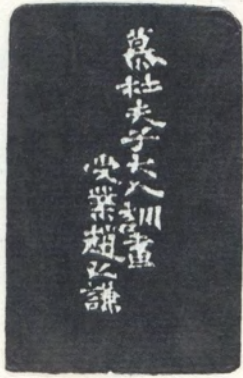 慕杜夫子大人訓畫
受業趙之謙